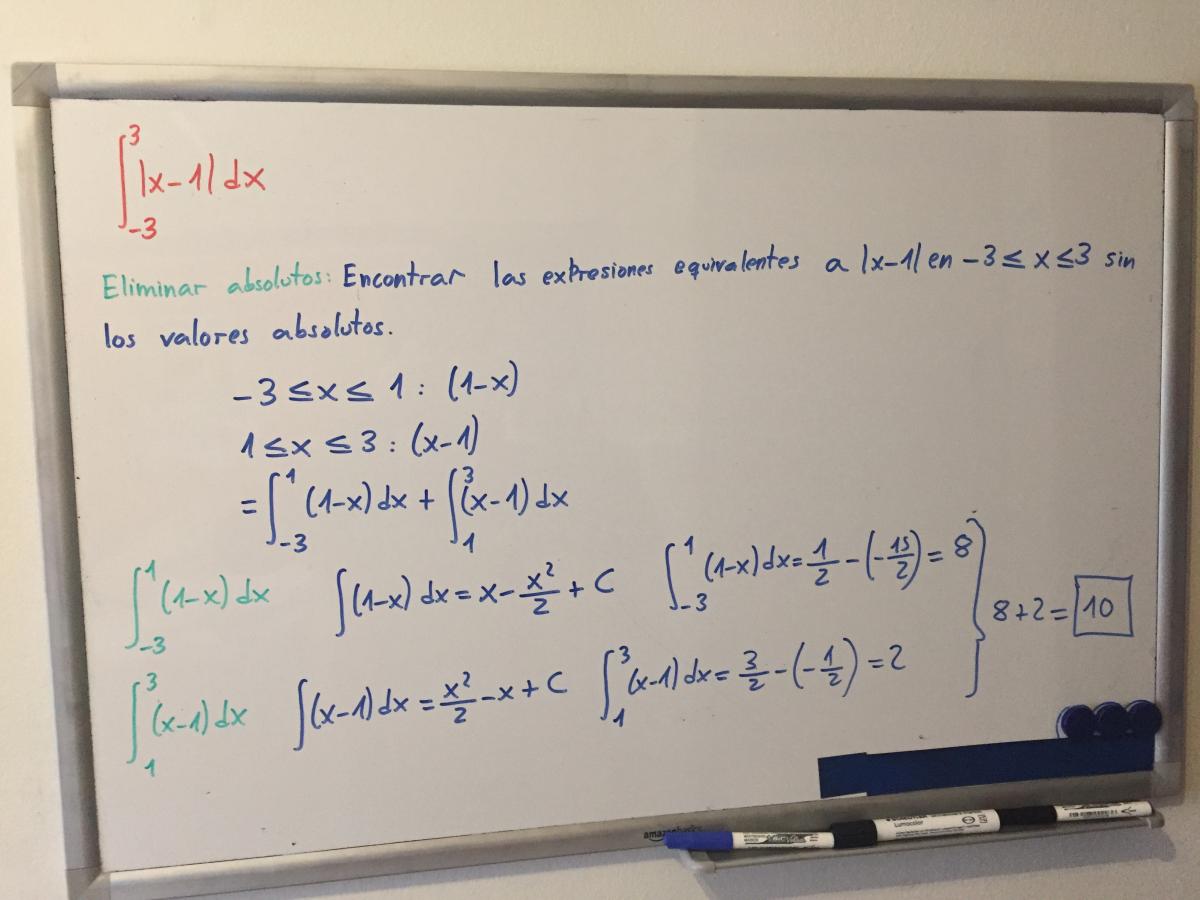 ∫_{-3}^{3} |x-1| dx
Eliminar absolutos: Encontrar las expresiones equivalentes a |x-1| en -3 ≤ x ≤ 3 sin
los valores absolutos.
-3 ≤ x ≤ 1 : (1-x)
1 ≤ x ≤ 3 : (x-1)
= ∫_{-3}^{1} (1-x) dx + ∫_{1}^{3} (x-1) dx
∫_{-3}^{1} (1-x) dx ∫(1-x) dx = x - x²/2 + C ∫_{-3}^{1} (1-x) dx = 1/2 - (-15/2) = 8
∫_{1}^{3} (x-1) dx ∫(x-1) dx = x²/2 - x + C ∫_{1}^{3} (x-1) dx = 3/2 - (-1/2) = 2
} 8+2 = 10
Lumocolor